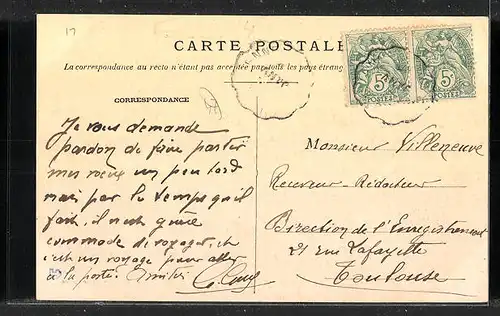 17
CARTE POSTALE
La correspondance au recto n'étant pas acceptée par tous les pays étrang
CORRESPONDANCE
5
5
POSTES
Je vous demande
pardon de faire partir
mes vœux un peu tard
mais par le temps qu'il
fait, il n'est guère
commode de voyager, et
c'est un voyage pour aller
à la poste.
Monsieur Villeneuve
Receveur-Rédacteur
Direction de l'Enregistrement
21 rue Lafayette
Toulouse